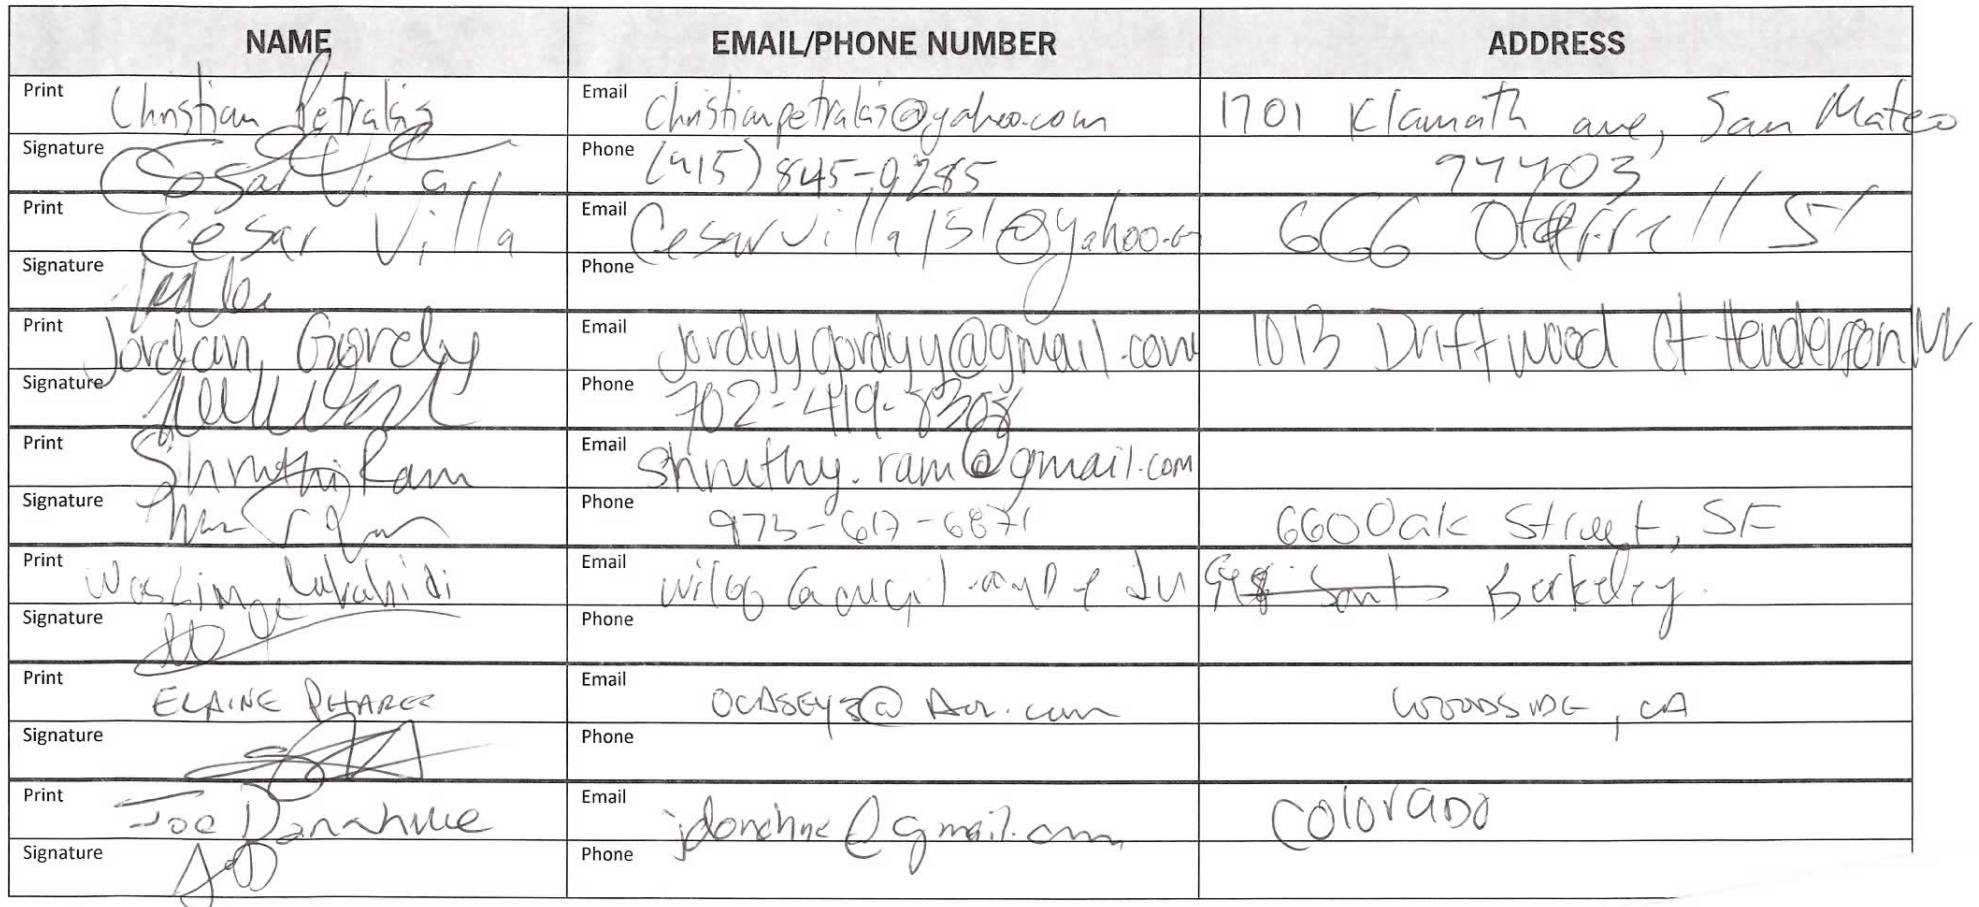 NAME EMAIL/PHONE NUMBER ADDRESS
Print Christian Petrakis Email christianpetrakis@yahoo.com 1701 Klamath ave, San Mateo
Signature Phone (415) 845-9285 94403
Print Cesar Villa Email Cesarvilla151@yahoo.co 666 St
Signature Phone
Print Jordan Gordy Email jordyygordyy@gmail.com 1013 Driftwood Ct Henderson NV
Signature Phone 702-419-8308
Print Shruthi Ram Email shruthy.ram@gmail.com
Signature Phone 973-617-6871 660 Oak Street, SF
Print Email Berkeley.
Signature Phone
Print ELAINE Email OCASEY3@AOL.com WOODSIDE, CA
Signature Phone
Print Joe Danahue Email @gmail.com Colorado
Signature Phone